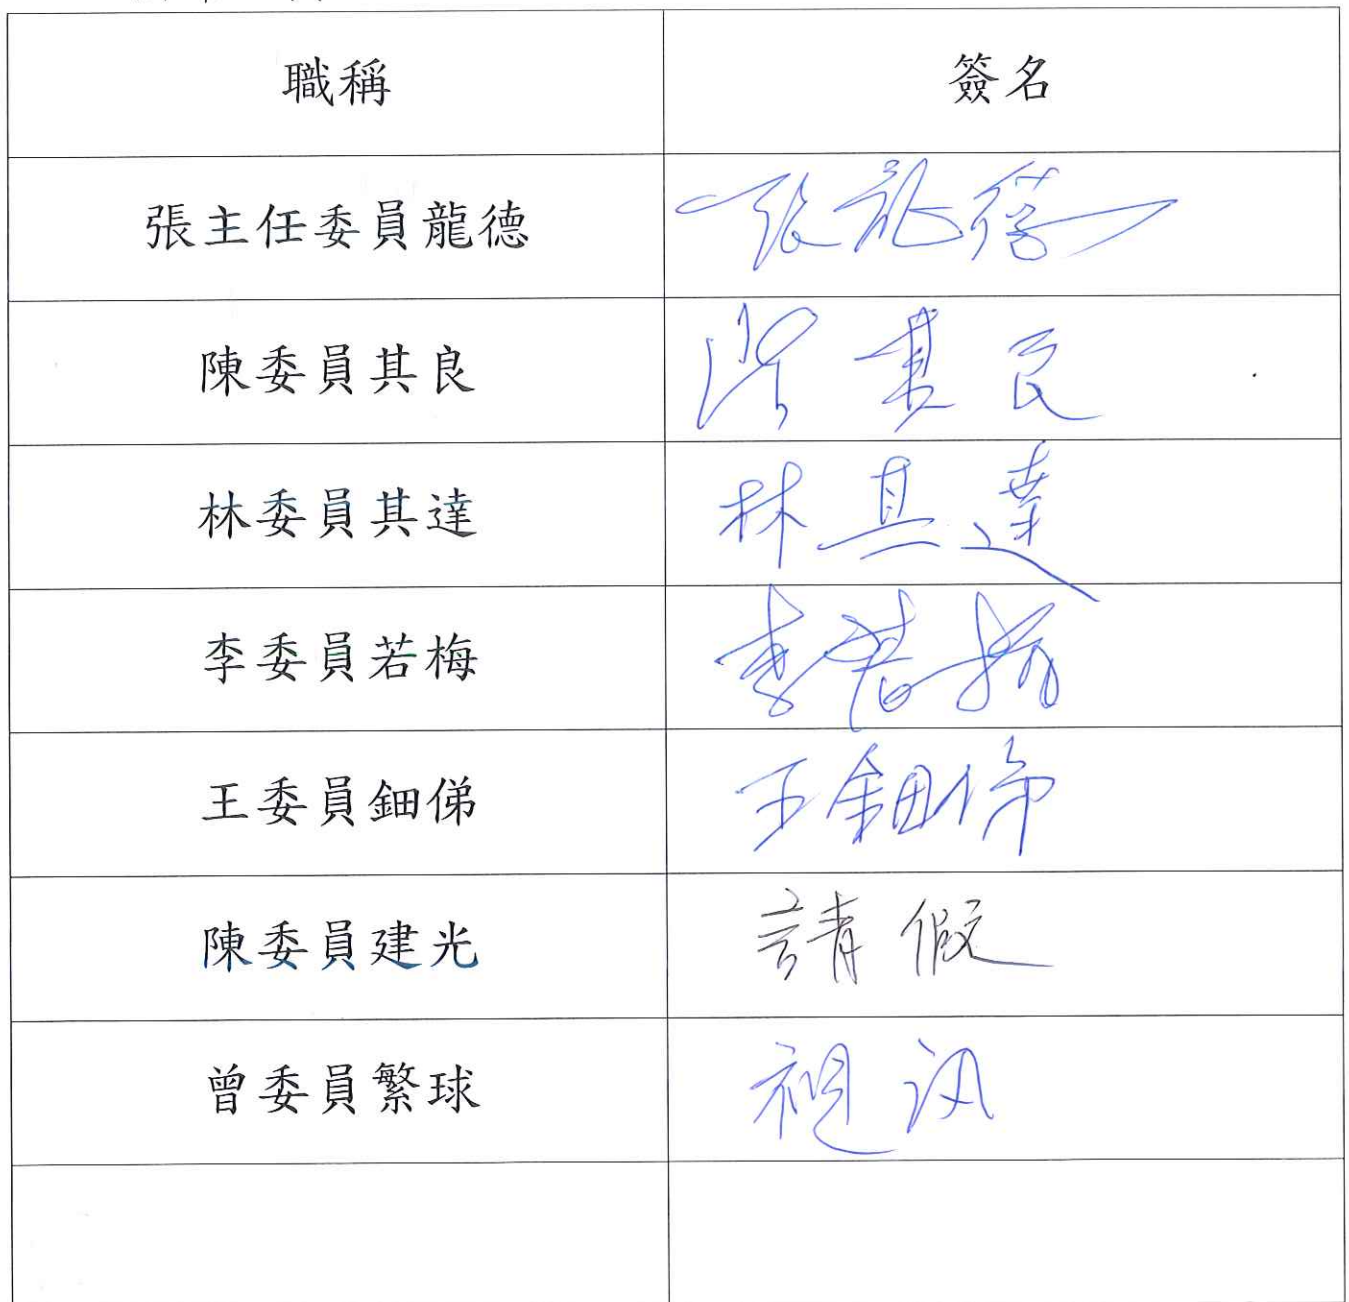 職稱 簽名
張主任委員龍德 張龍德
陳委員其良 陳其良
林委員其達 林其達
李委員若梅 李若梅
王委員鈿俤 王鈿俤
陳委員建光 請假
曾委員繁球 視訊